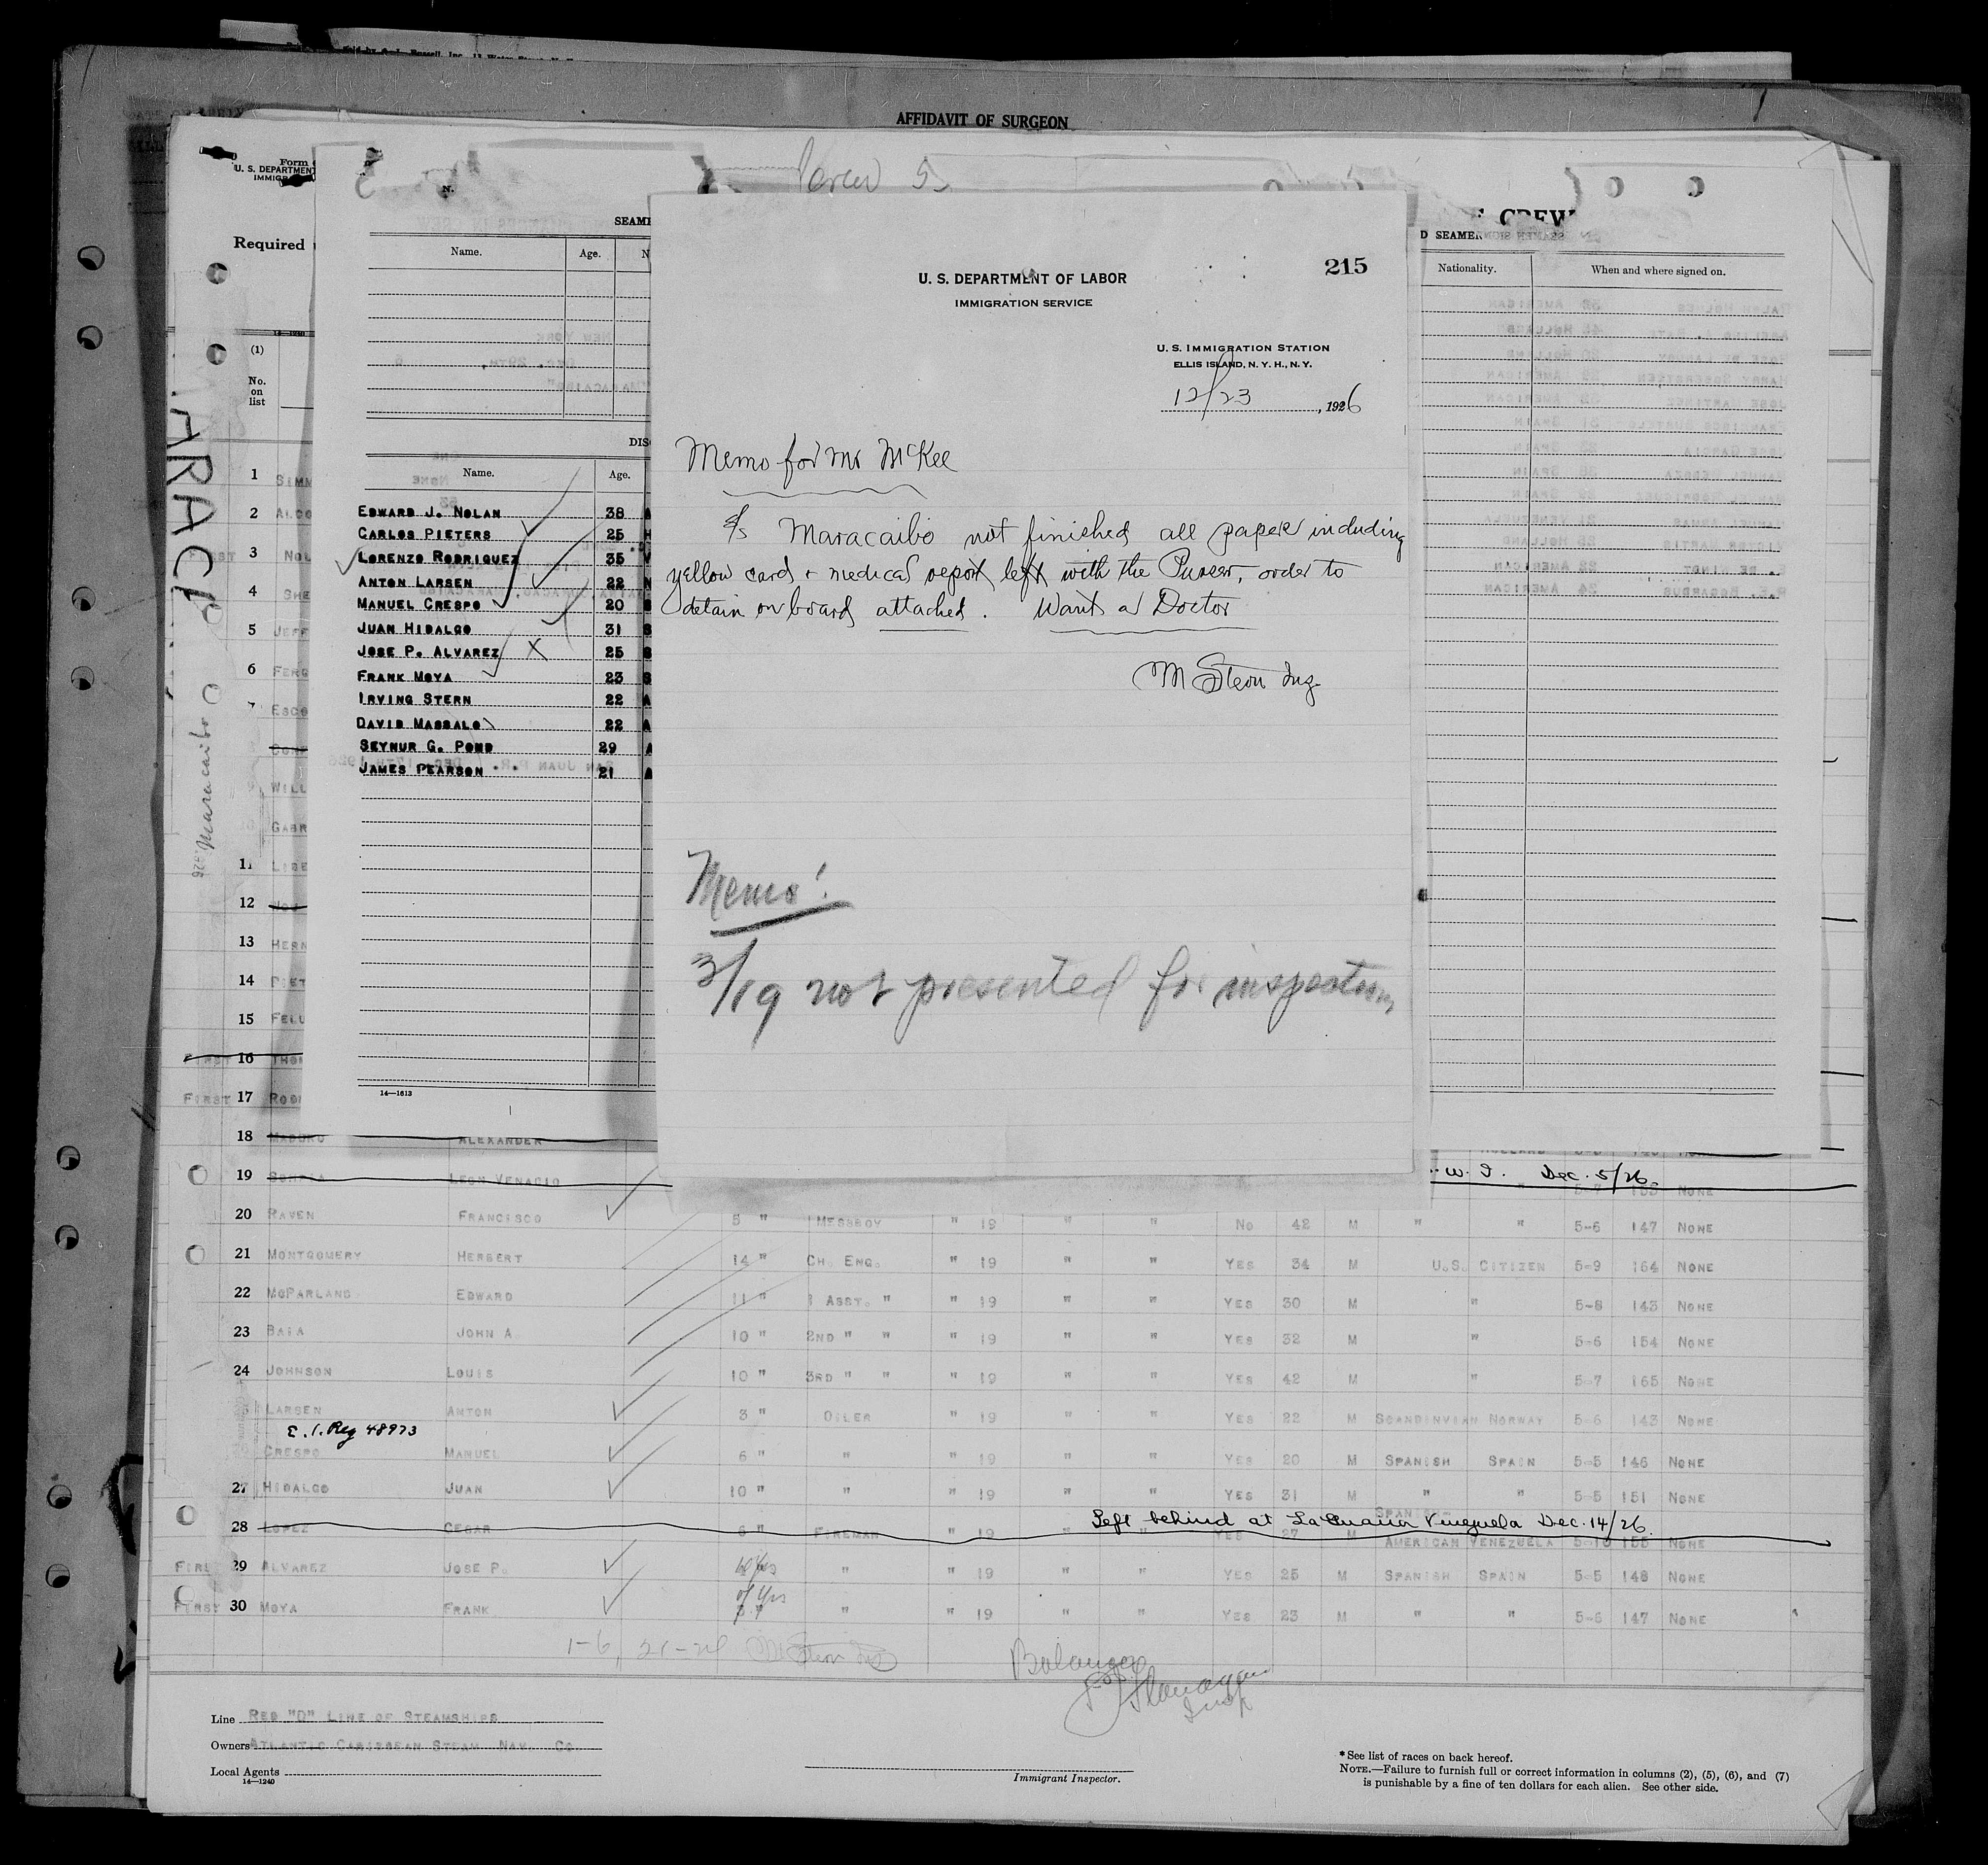 AFFIDAVIT OF SURGEON
U. S. DEPARTMENT
Required
No.
on
list
(1)
14—1240
Maracaibo
SEAME
Name. Age. N
Name. Age.
EDWARD J. NOLAN 38 A
CARLOS PIETERS 25 H
LORENZO RODRIGUEZ 35 V
ANTON LARSEN 22 N
MANUEL CRESPO 20 S
JUAN HIDALGO 31 S
JOSE P. ALVAREZ X 25 S
FRANK MOYA 23 S
IRVING STERN 22 A
DAVID MASSALO 22 A
SEYNUR G. POND 29 A
JAMES PEARSON 21 A
14—1613
215
U. S. DEPARTMENT OF LABOR
IMMIGRATION SERVICE
U. S. IMMIGRATION STATION
ELLIS ISLAND, N. Y. H., N. Y.
12/23, 1926
Memo for Mr McKee
S/S Maracaibo not finished all papers including
yellow card & medical report left with the Purser, order to
detain on board attached. Want a Doctor
M Stern Insp.
Memo!
3/19 not presented for inspection
CREW
D SEAMEN
Nationality. When and where signed on.
1 SIMM
2 ALCO
FIRST 3 NOL
4 SHE
5 JEFF
6 FERG
7 ESCO
WILL
GABR
11 LIBE
12
13 HERN
14 PIET
15 FELU
FIRST 16 THOM
FIRST 17 RODR
18 MADURO ALEXANDER
19 LEON VENACIO W. I. Dec. 5/26. NONE
20 RAVEN FRANCISCO 5 " MESSBOY " 19 " " NO 42 M " " 5-6 147 NONE
21 MONTGOMERY HERBERT 14 " CH. ENG. " 19 " " YES 34 M U.S. CITIZEN 5-9 164 NONE
22 MCPARLAND EDWARD 11 " 1 ASST. " " 19 " " YES 30 M " 5-8 143 NONE
23 BAIA JOHN A. 10 " 2ND " " " 19 " " YES 32 M " 5-6 154 NONE
24 JOHNSON LOUIS 10 " 3RD " " " 19 " " YES 42 M " 5-7 165 NONE
LARSEN ANTON 3 " OILER " 19 " " YES 22 M SCANDINVIAN NORWAY 5-6 143 NONE
E. I. Reg 48973
CRESPO MANUEL 6 " " " 19 " " YES 20 M SPANISH SPAIN 5-5 146 NONE
27 HIDALGO JUAN 10 " " " 19 " " YES 31 M " " 5-5 151 NONE
Left behind at La Guaira Venezuela Dec. 14/26.
28 LOPEZ CESAR 6 " FIREMAN " 19 " " YES 27 M SPANISH AMERICAN VENEZUELA 5-10 155 NONE
FIRST 29 ALVAREZ JOSE P. " " 19 " " YES 25 M SPANISH SPAIN 5-5 148 NONE
FIRST 30 MOYA FRANK " " 19 " " YES 23 M " " 5-6 147 NONE
1-6, 21-24 M Stern Insp
Balance
Flanagan
Insp
Line RED "D" LINE OF STEAMSHIPS
Owners ATLANTIC CARIBBEAN STEAM NAV. CO
Local Agents
14—1240
Immigrant Inspector.
*See list of races on back hereof.
NOTE.—Failure to furnish full or correct information in columns (2), (5), (6), and (7)
is punishable by a fine of ten dollars for each alien. See other side.